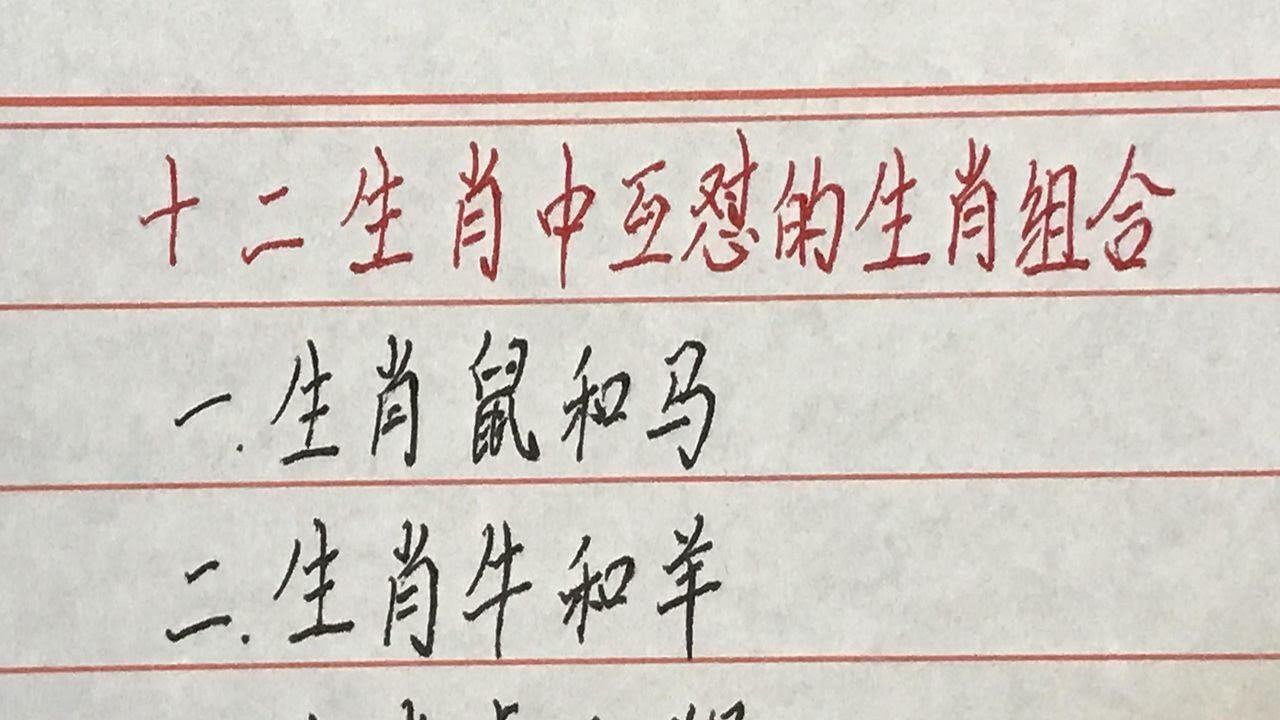 十二生肖中互怼的生肖组合
一.生肖鼠和马
二.生肖牛和羊